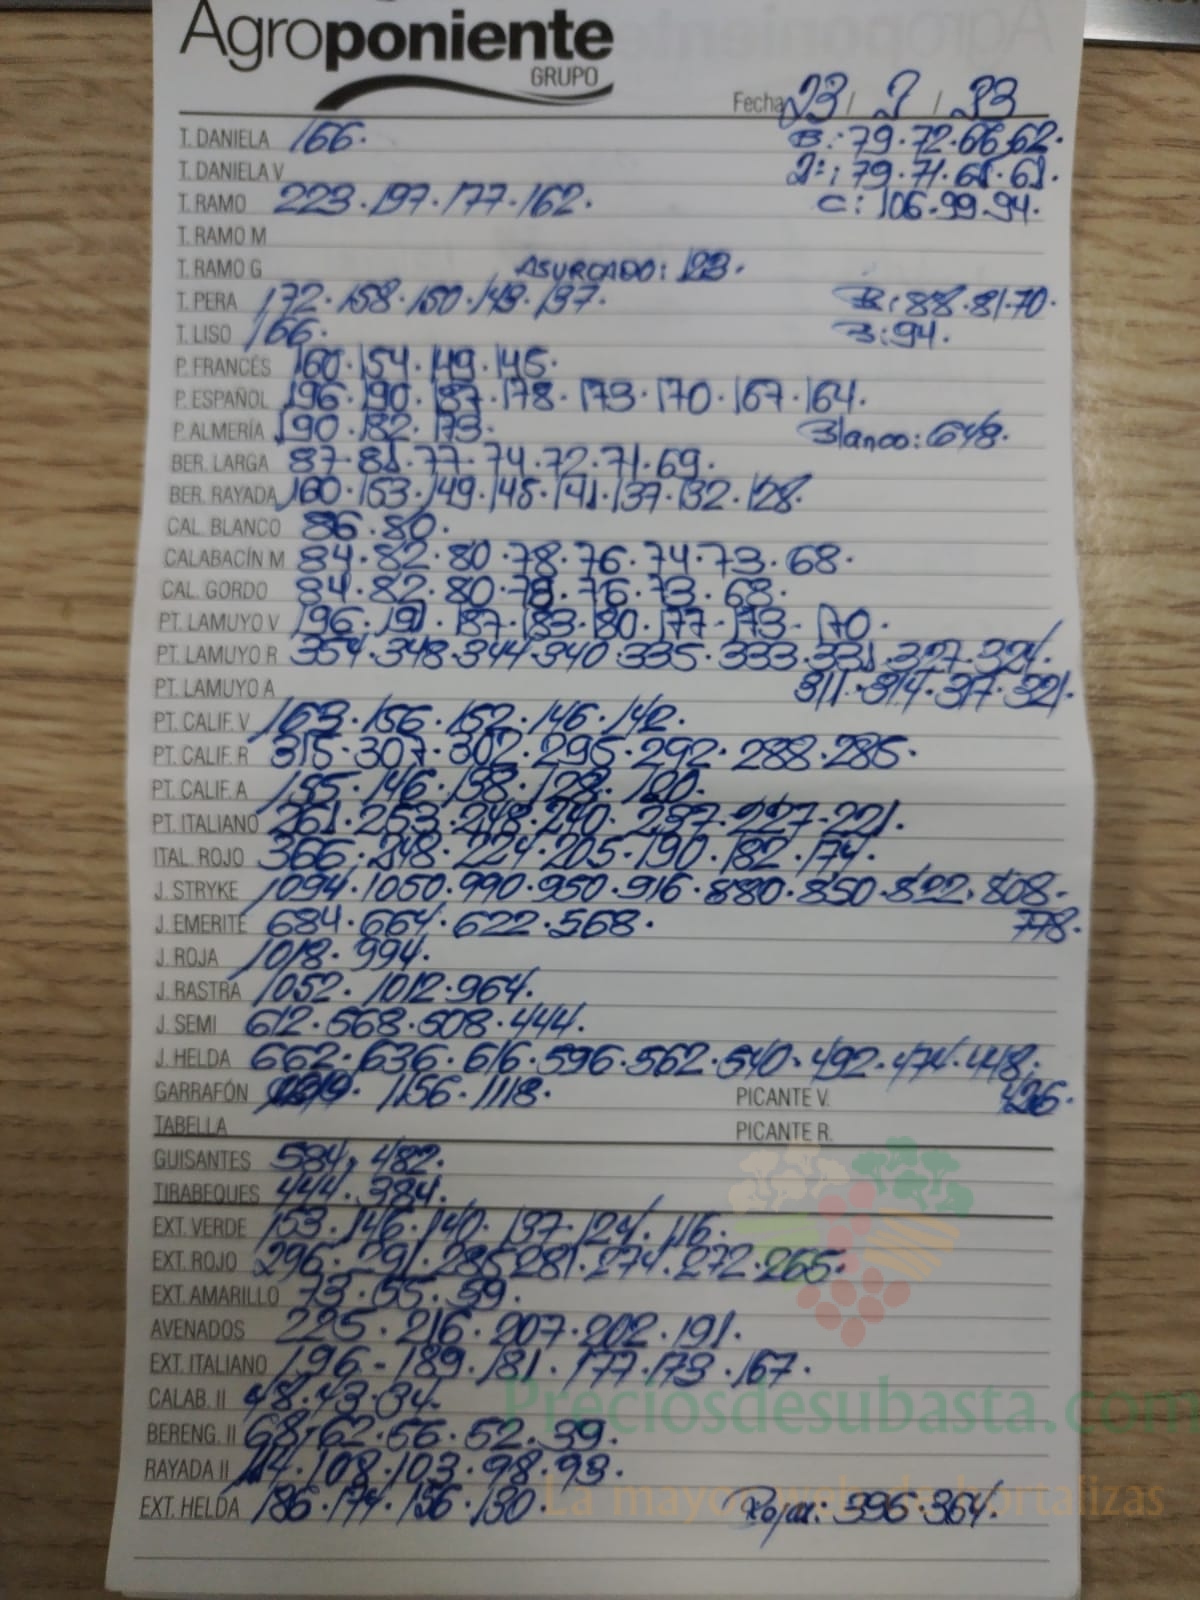 Agroponiente
GRUPO
Fecha 23 / 2 / 23
T. DANIELA 166. B: 79.72.66.62.
T. DANELA V 2ª: 79.71.65.61.
T. RAMO 223.197.177.162. C: 106.99.94.
T. RAMO M
T. RAMO G ASURCADO: 123.
T. PERA 172.158.150.143.137. R: 88.81.70.
T. LISO 166. B: 94.
P. FRANCÉS 160.154.149.145.
P. ESPAÑOL 196.190.187.178.173.170.167.164.
P. ALMERÍA 190.182.173. Blanco: 648.
BER. LARGA 87.81.77.74.72.71.69.
BER. RAYADA 160.153.149.145.141.137.132.128.
CAL. BLANCO 86.80.
CALABACÍN M 84.82.80.78.76.74.73.68.
CAL. GORDO 84.82.80.78.76.73.68.
PT. LAMUYO V 196.191.187.183.180.177.173.170.
PT. LAMUYO R 354.348.344.340.335.333.331.327.324.
PT. LAMUYO A 311.314.317.321.
PT. CALIF. V 163.156.152.146.142.
PT. CALIF. R 315.307.302.295.292.288.285.
PT. CALIF. A 155.146.138.128.120.
PT. ITALIANO 261.253.248.240.237.227.221.
ITAL. ROJO 366.248.224.205.190.182.174.
J. STRYKE 1094.1050.990.950.916.880.850.822.808.
J. EMERITE 684.664.622.568. 778.
J. ROJA 1018.994.
J. RASTRA 1052.1012.964.
J. SEMI 612.568.508.444.
J. HELDA 662.636.616.596.562.540.492.474.448.
GARRAFÓN 1156.1118. PICANTE V. 426.
TABELLA PICANTE R.
GUISANTES 584.482.
TIRABEQUES 444.384.
EXT. VERDE 153.146.140.137.124.116.
EXT. ROJO 296.291.285.281.274.272.265.
EXT. AMARILLO 73.55.39.
AVENADOS 225.216.207.202.191.
EXT. ITALIANO 196-189.181.177.173.167.
CALAB. II 48.43.34.
Preciosdesubasta.com
BERENG. II 68.62.56.52.39.
RAYADA II 114.108.103.98.93.
EXT. HELDA 186.174.156.130. Rojas: 396.364.
La mayor web de hortalizas